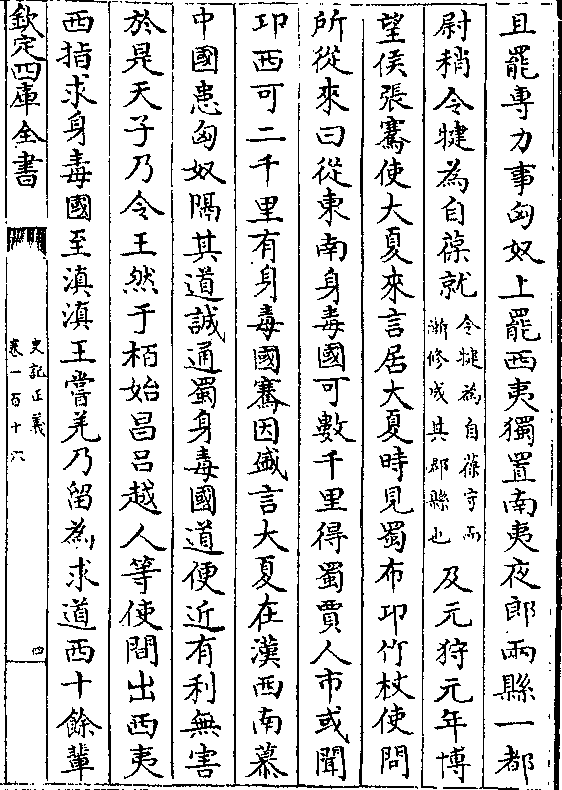 且罷專力事匈奴上罷西夷獨置南夷夜郎兩縣一都
尉稍令犍為自葆就令犍為自葆守而漸修成其郡縣也及元狩元年博
望侯張騫使大夏來言居大夏時見蜀布卭竹杖使問
所從來曰從東南身毒國可數千里得蜀賈人市或聞
卭西可二千里有身毒國騫因盛言大夏在漢西南慕
中國患匈奴隔其道誠通蜀身毒國道便近有利無害
於是天子乃令王然于栢始昌吕越人等使間出西夷
西指求身毒國至滇滇王嘗羌乃留為求道西十餘輩
欽定四庫全書
史記正義
卷一百十六
四